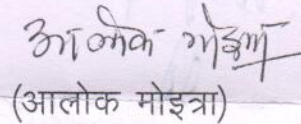 आलोक मोइत्रा
(आलोक मोइत्रा)